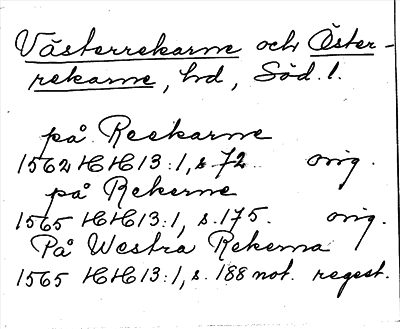 Västerrekarne och Öster-
rekarne, hd, Söd. l.
på Reekarne
1562 HH13:1, s. 72. orig.
på Rekerne
1565 HH13:1, s. 175. orig.
På Westra Rekerna
1565 HH13:1, s. 188 not. regest.